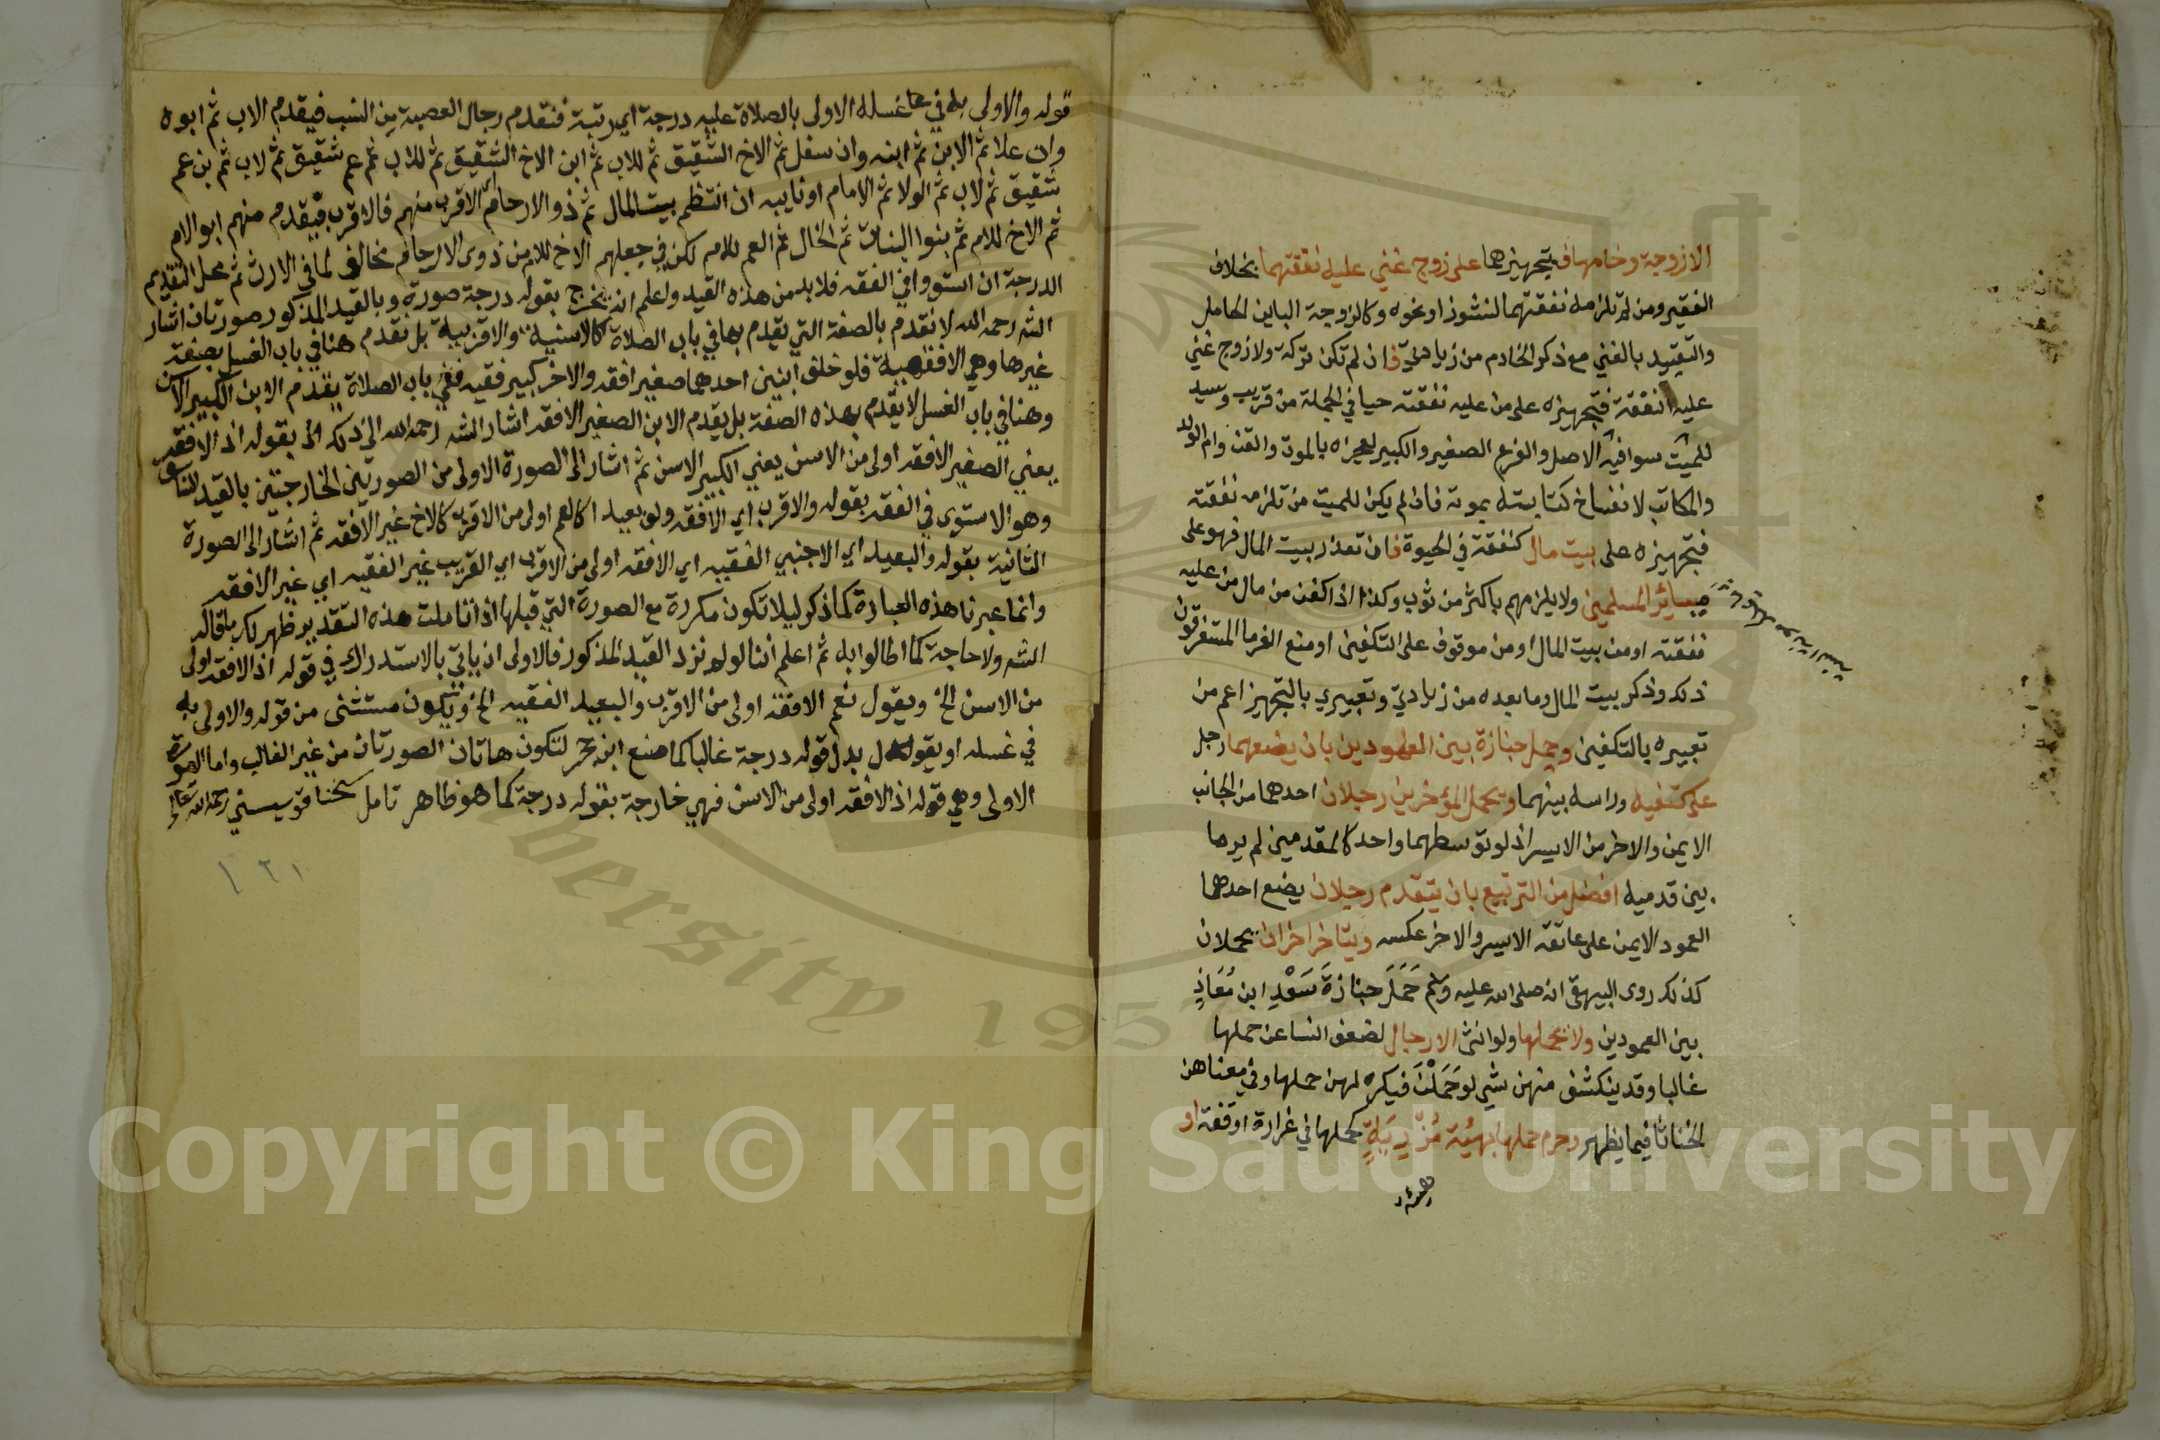 الا زوجة وخادمها فتجهيزهما على زوج غني عليه نفقتهما بخلاف
الفقير ومن لم تلزمه نفقتهما لنشوز او نحوه وكالزوجة الباين الحامل
والتقييد بالغني مع ذكر الخادم من زيادتي فان لم تكن تركة ولا زوج غني
عليه النفقة فتجهيزه على من عليه نفقته حيا في الجملة من قريب وسيد
للميت سوا فيه الاصل والفرع الصغير والكبير لعجزه بالموت والقن وام الولد
والمكاتب لانفساخ كتابته بموته فان لم يكن للميت من تلزمه نفقته
فتجهيزه على بيت مال كنفقته في الحيوة فان تعذر بيت المال فهو على
مياسير المسلمين ولا يلزمهم باكثر من ثوب وكذا اذا كفن من مال من عليه
نفقته او من بيت المال او من موقوف على التكفين او منع الغرما المستغرقون
ذلك وذكر بيت المال وما بعده من زيادتي وتعبيري بالتجهيز اعم من
تعبيره بالتكفين وحمل جنازة بين العمودين بان يضعهما رجل
على كتفيه وراسه بينهما ويحمل المؤخرين رجلان احدهما من الجانب
الايمن والاخر من الايسر اذ لو توسطهما واحد كالمقدمين لم ير ما
بين قدميه افضل من التربيع بان يتقدم رجلان يضع احدهما
العمود الايمن على عاتقه الايسر والاخر عكسه ويتاخر اخران يحملان
كذلك روى البيهقي انه صلى الله عليه وسلم حَمَلَ جنازةَ سَعْدِ ابن مُعَاذٍ
بين العمودين ولا يحملها ولو انثى الا رجال لضعف النسا عن حملها
غالبا وقد ينكشف منهن شي لو حَمَلْنَ فيكره لهن حملها وفي معناهن
الخناثا فيما يظهر وحرم حملها بهيئة مُزْرِيَةٍ كحملها في غرارة او قفة او
هيئة
قوله والاولى به في غسله الاولى بالصلاة عليه درجة اي رتبة فتقدم رجال العصبة من النسب فيقدم الاب ثم ابوه
وان علا ثم الابن ثم ابنه وان سفل ثم الاخ الشقيق ثم للاب ثم ابن الاخ الشقيق ثم للاب ثم عم شقيق ثم لاب ثم بن عم
شقيق ثم لاب ثم الولا ثم الامام او نايبه ان انتظم بيت المال ثم ذو الارحام الاقرب منهم فالاقرب فيقدم منهم ابو الام
ثم الاخ للام ثم بنوا البنات ثم الخال ثم العم للام لكن في جعلهم الاخ للام من ذوى الارحام مخالف لما في الارث ثم محل التقديم
الدرجة ان استووا في الفقه فلابد من هذه القيد واعلم انه يخرج بقوله درجة صورة وبالقيد المذكور صورتان اشار
الشه رحمه الله لا نقدم بالصفة التي يقدم بها في باب الصلاة كالاسنية والاقربية بل نقدم هنا في باب الغسل بصفة
غيرها وهي الافقهية فلو خلف ابنين احدهما صغير افقه والاخر كبير فقيه ففي باب الصلاة يقدم الابن الكبير الاسن
وهنا في باب الغسل لا يقدم بهذه الصفة بل يقدم الابن الصغير الافقه اشار الشه رحمه الله الى ذلك بقوله اذ الافقه
يعني الصغير الافقه اولى من الاسن يعني الكبير الاسن ثم اشار الى الصورة الاولى من الصورتين الخارجتين بالقيد
وهو الاستوى في الفقه بقوله والاقرب اي الافقه ولو بعيدا كالعم اولى من الاقرب كالاخ غير الافقه ثم اشار الى الصورة
الثانية بقوله والبعيد اي الاجنبي الفقيه اي الافقه اولى من الاقرب اي القريب غير الفقيه اي غير الافقه
وانما عبرنا هذه العبارة كما ذكر ليلا تكون مكررة مع الصورة التي قبلها اذا تاملت هذه التقدير ظهر لك ما قاله
الشه ولا حاجة كما اطالوا به ثم اعلم اننا لو لم نزد القيد المذكور فالاولى ان ياتي بالاستدراك في قوله اذ الافقه اولى
من الاسن الخ ويقول نعم الافقه اولى من الاقرب والبعيد الفقيه الخ ويكون مستثنى من قوله والاولى به
في غسله او يقول بدل قوله درجة غالبا كما صنع ابن حجر لتكون هاتان الصورتان من غير الغالب واما الصورة
الاولى وهي قوله اذ الافقه اولى من الاسن فهي خارجة بقوله درجة كما هو ظاهر تامل شخنا قويسني رحمه الله تعالى
١٢١
Copyright © King Saud University
University 1957